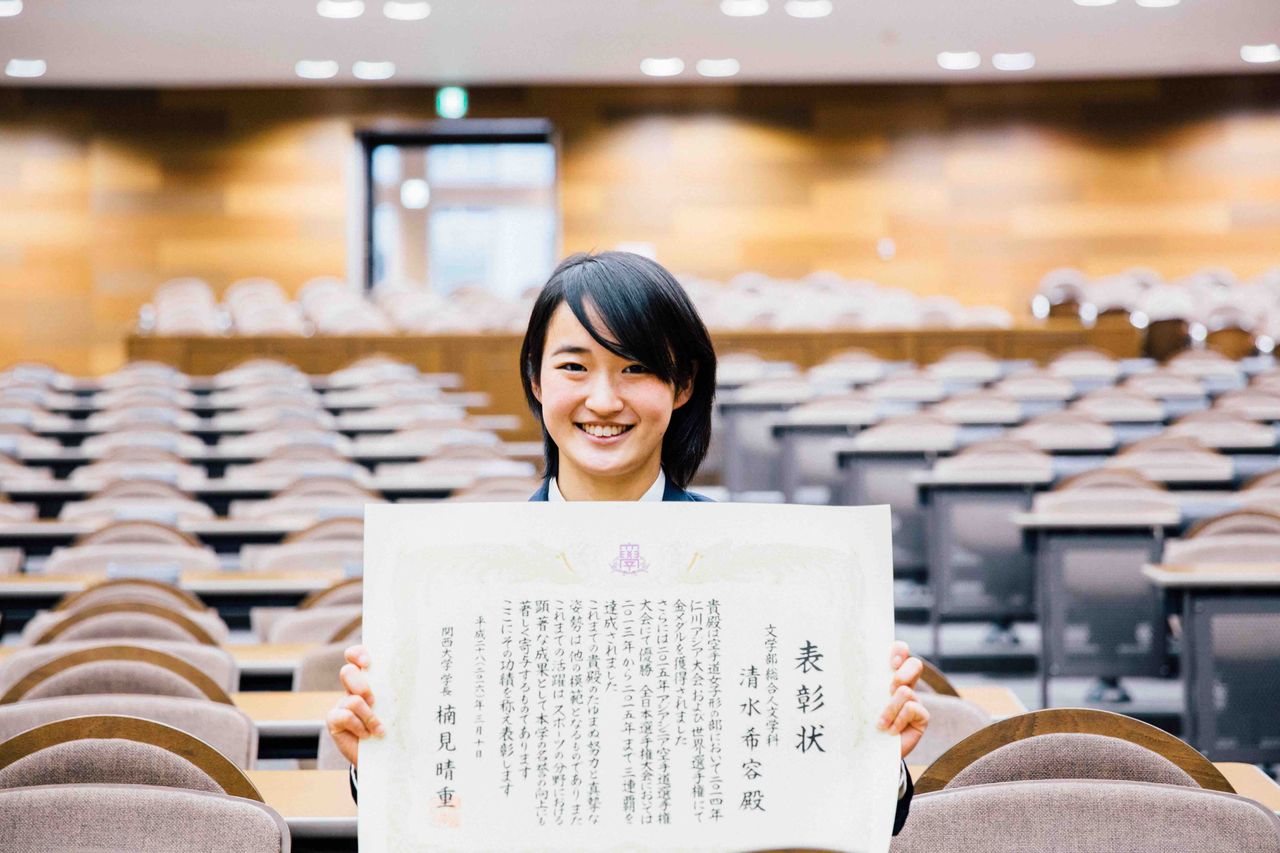 表彰状
文学部 総合人文学科
清水希容殿
貴殿は空手道女子形の部において二〇一四年
仁川アジア大会および世界選手権にて
金メダルを獲得されました
さらには二〇一五年アジア空手道選手権
大会にて優勝 全日本選手権大会においては
二〇一三年から二〇一五年まで三連覇を
達成されました
これまでの貴殿のたゆまぬ努力と真摯な
姿勢は他の模範となるものでありまた
これまでの活躍はスポーツの分野における
顕著な成果として本学の名誉の向上にも
著しく寄与するものであります
ここにその功績を称え表彰します
平成二十八(二〇一六)年三月十日
関西大学学長 楠見晴重